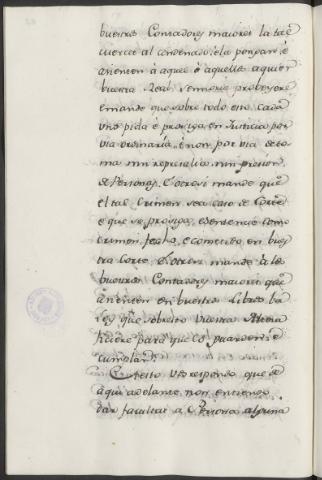 buestros Contadores maiores la tal
merced al condenado: e la pongan: é
asienten á aquel ó aquellos a quien
buestra Real Sennoria probeyere
e mande que sobre todo esto cada
uno pida é prosiga en Justicia por
via ordinaria, é non por via de to-
ma nin represalia, nin prision
de Personas. E otrosí mande que
el tal Crimen sea caso de Corte
e que se prosiga, e sentencie como
crimen fecho, e cometido en bues-
tra Corte. E otrosi mande a los
buestros Contadores maiores que
asienten en buestros Libros la
Ley que sobresto Vuestra Alteza
ficiere para que se guarden, é
cumplan.
A esto vos respondo que de
aqui adelante non entiendo
dar facultad a Persona alguna